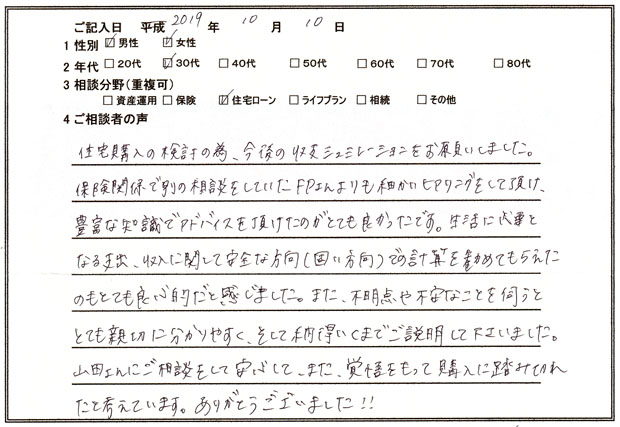 ご記入日 平成 2019 年 10 月 10 日
1 性別 ☑男性 ☑女性
2 年代 □20代 ☑30代 □40代 □50代 □60代 □70代 □80代
3 相談分野(重複可)
□資産運用 □保険 ☑住宅ローン □ライフプラン □相続 □その他
4 ご相談者の声
住宅購入の検討の為、今後の収支シュミレーションをお願いしました。
保険関係で別の相談をしていたFPさんよりも細かいヒアリングをして頂け、
豊富な知識でアドバイスを頂けたのがとても良かったです。生活に必要と
なる支出、収入に関して安全な方向(固い方向)での計算を勧めてもらえた
のもとても良心的だと感じました。また、不明点や不安なことを伺うと
とても親切に分かりやすく、そして納得いくまでご説明して下さいました。
山田さんにご相談をして安心して、また、覚悟をもって購入に踏み切れ
たと考えています。ありがとうございました!!